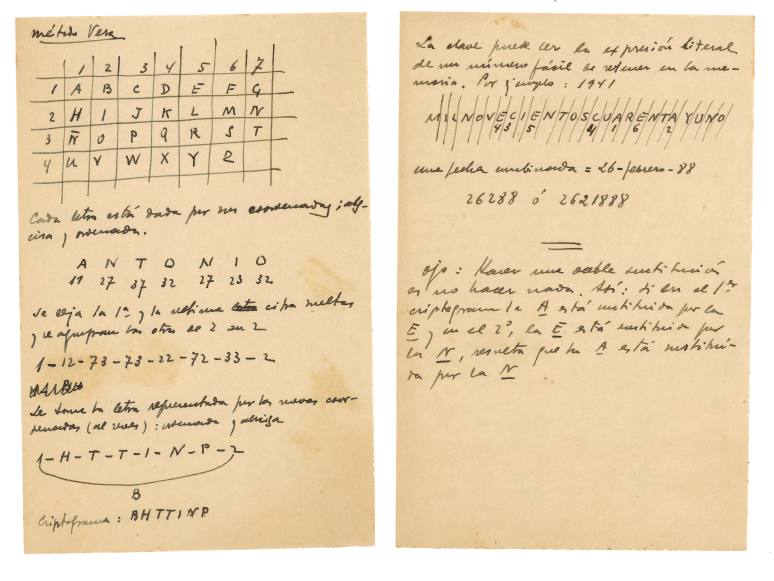 método Vera
1 2 3 4 5 6 7
1 A B C D E F G
2 H I J K L M N
3 Ñ O P Q R S T
4 U V W X Y Z
Cada letra está dada por sus coordenadas; abs-
cisa y ordenada.
A N T O N I O
11 27 37 32 27 23 32
se deja la 1ª y la última cifra sueltas
y se agrupan las otras de 2 en 2
1-12-73-73-22-72-33-2
Se toma la letra representada por las nuevas coor-
denadas (al revés): ordenada y abscisa
1-H-T-T-I-N-P-2
B
Criptograma: BHTTINP
La clave puede ser la expresión literal
de un número fácil de retener en la me-
moria. Por ejemplo: 1941
MILNOVECIENTOSCUARENTAYUNO
4 3 5 4 1 6 2
una fecha combinada = 26-febrero-88
26288 ó 2621888
ojo: Hacer una doble sustitución
es no hacer nada. Así: si en el 1er
criptograma la A está sustituida por la
E y en el 2º, la E está sustituida por
la N, resulta que la A está sustituí-
da por la N